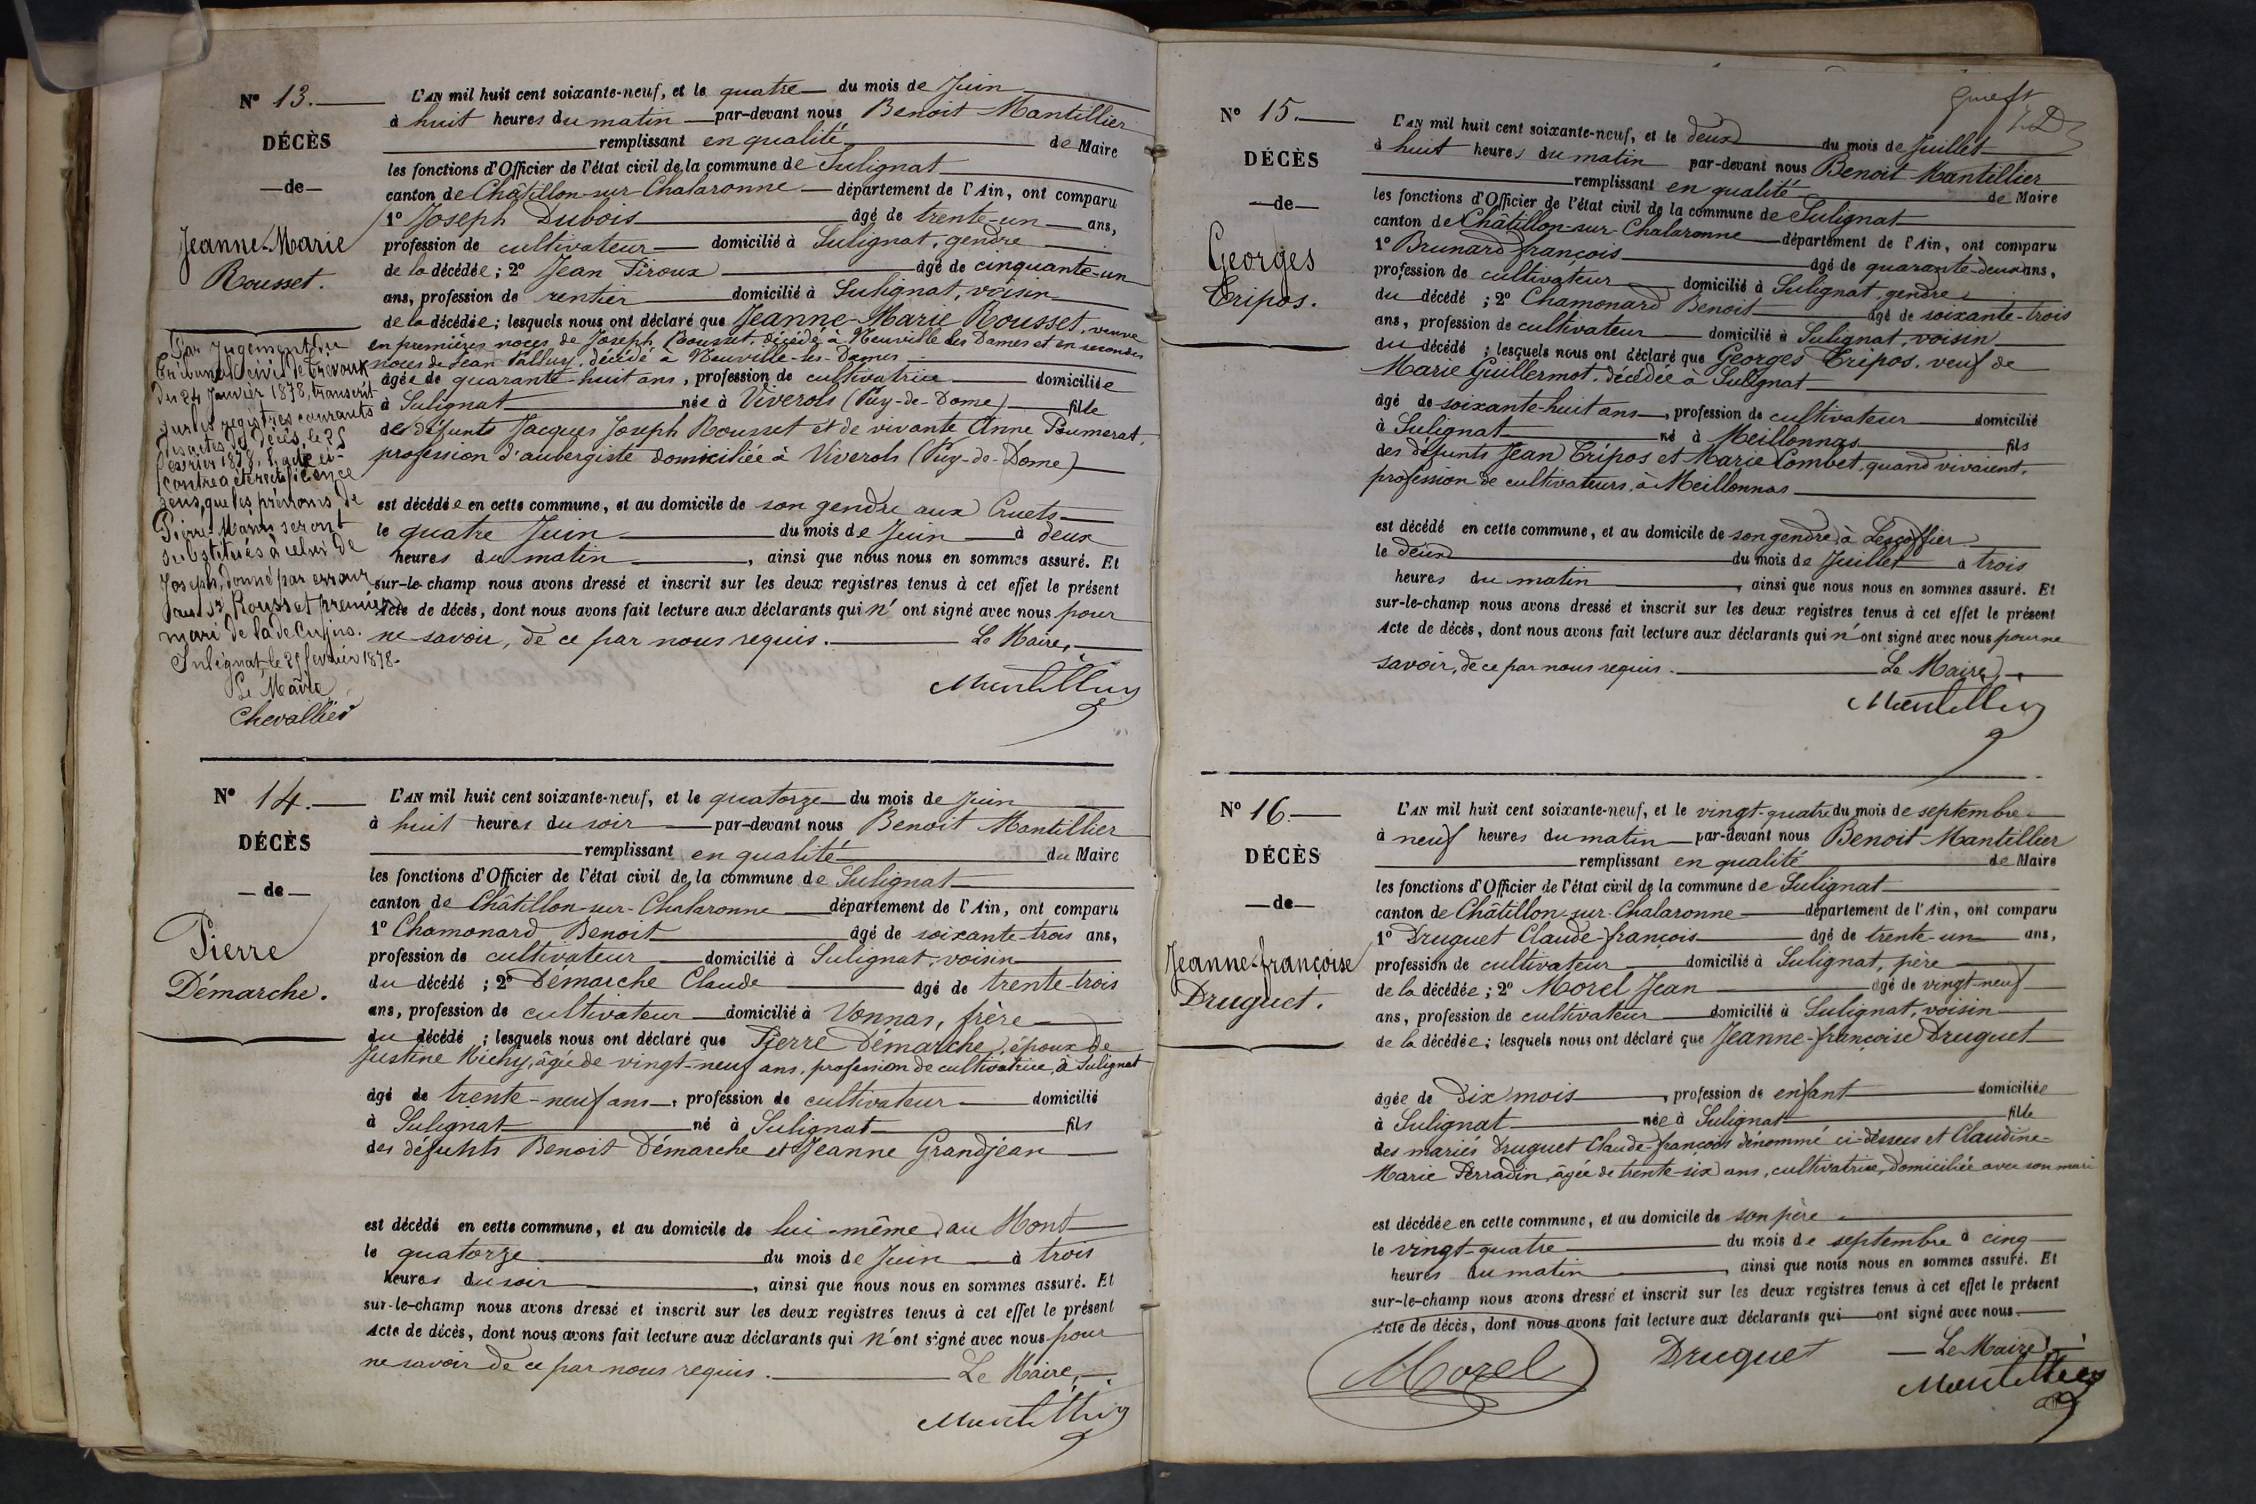 N° 13.
DÉCÈS
—de—
Jeanne-Marie
Rousset.
Par Jugement du
Tribunal Civil de Trévoux
du 24 Janvier 1878, transcrit
sur les registres courants
des actes de décès, le 25
février 1878, l'acte ci-
contre a été rectifié en ce
sens, que les prénoms de
Pierre Marie seront
substitués à celui de
Joseph, donné par erreur
au Sr Rousset premier
mari de la de Cujus.
Sulignat le 25 février 1878.
Le Maire
Chevallier
L'AN mil huit cent soixante-neuf, et le quatre du mois de Juin
à huit heures du matin par-devant nous Benoit Mantillier
remplissant en qualité de Maire
les fonctions d'Officier de l'état civil de la commune de Sulignat
canton de Châtillon-sur-Chalaronne département de l'Ain, ont comparu
1° Joseph Dubois âgé de trente-un ans,
profession de cultivateur domicilié à Sulignat, gendre
de la décédée; 2° Jean Piroux âgé de cinquante-un
ans, profession de rentier domicilié à Sulignat, voisin
de la décédée; lesquels nous ont déclaré que Jeanne-Marie Rousset, veuve
en premières noces de Joseph Rousset, décédé à Neuville les Dames et en secondes
noces de Jean Palluy, décédé à Neuville-les-Dames
âgée de quarante-huit ans, profession de cultivatrice domiciliée
à Sulignat née à Viverols (Puy-de-Dome) fille
des défunts Jacques Joseph Rousset et de vivante Anne Poumerat,
profession d'aubergiste domiciliée à Viverols (Puy-de-Dome)
est décédée en cette commune, et au domicile de son gendre aux Cruets
le quatre Juin du mois de Juin à deux
heures du matin, ainsi que nous nous en sommes assuré. Et
sur-le-champ nous avons dressé et inscrit sur les deux registres tenus à cet effet le présent
Acte de décès, dont nous avons fait lecture aux déclarants qui n'ont signé avec nous pour
ne savoir, de ce par nous requis. Le Maire,
Mantillier
N° 14.
DÉCÈS
—de—
Pierre
Démarche.
L'AN mil huit cent soixante-neuf, et le quatorze du mois de Juin
à huit heures du soir par-devant nous Benoit Mantillier
remplissant en qualité du Maire
les fonctions d'Officier de l'état civil de la commune de Sulignat
canton de Châtillon-sur-Chalaronne département de l'Ain, ont comparu
1° Chamonard Benoit âgé de soixante-trois ans,
profession de cultivateur domicilié à Sulignat, voisin
du décédé; 2° Démarche Claude âgé de trente-trois
ans, profession de cultivateur domicilié à Vonnas, frère
du décédé; lesquels nous ont déclaré que Pierre Démarche, époux de
Justine Michy, âgée de vingt-neuf ans, profession de cultivatrice, à Sulignat
âgé de trente-neuf ans, profession de cultivateur domicilié
à Sulignat né à Sulignat fils
des défunts Benoit Démarche et Jeanne Grandjean
est décédé en cette commune, et au domicile de lui-même, au Mont
le quatorze du mois de Juin à trois
heures du soir, ainsi que nous nous en sommes assuré. Et
sur-le-champ nous avons dressé et inscrit sur les deux registres tenus à cet effet le présent
Acte de décès, dont nous avons fait lecture aux déclarants qui n'ont signé avec nous pour
ne savoir de ce par nous requis. Le Maire,
Mantillier
N° 15.
DÉCÈS
—de—
Georges
Tripos.
L'AN mil huit cent soixante-neuf, et le deux du mois de Juillet
à huit heures du matin par-devant nous Benoit Mantillier
remplissant en qualité de Maire
les fonctions d'Officier de l'état civil de la commune de Sulignat
canton de Châtillon-sur-Chalaronne département de l'Ain, ont comparu
1° Brunard françois âgé de quarante-deux ans,
profession de cultivateur domicilié à Sulignat, gendre
du décédé; 2° Chamonard Benoit âgé de soixante-trois
ans, profession de cultivateur domicilié à Sulignat, voisin
du décédé; lesquels nous ont déclaré que Georges Tripos, veuf de
Marie Guillermot, décédée à Sulignat
âgé de soixante-huit ans, profession de cultivateur domicilié
à Sulignat né à Meillonnas fils
des défunts Jean Tripos et Marie Combet, quand vivaient,
profession de cultivateurs, à Meillonnas
est décédé en cette commune, et au domicile de son gendre, à Lescoffier
le deux du mois de Juillet à trois
heures du matin, ainsi que nous nous en sommes assuré. Et
sur-le-champ nous avons dressé et inscrit sur les deux registres tenus à cet effet le présent
Acte de décès, dont nous avons fait lecture aux déclarants qui n'ont signé avec nous pour ne
savoir, de ce par nous requis. Le Maire,
Mantillier
N° 16.
DÉCÈS
—de—
Jeanne-françoise
Druguet.
L'AN mil huit cent soixante-neuf, et le vingt-quatre du mois de septembre
à neuf heures du matin par-devant nous Benoit Mantillier
remplissant en qualité de Maire
les fonctions d'Officier de l'état civil de la commune de Sulignat
canton de Châtillon-sur-Chalaronne département de l'Ain, ont comparu
1° Druguet Claude françois âgé de trente-un ans,
profession de cultivateur domicilié à Sulignat, père
de la décédée; 2° Morel Jean âgé de vingt-neuf
ans, profession de cultivateur domicilié à Sulignat, voisin
de la décédée; lesquels nous ont déclaré que Jeanne-françoise Druguet
âgée de dix mois, profession de enfant domiciliée
à Sulignat née à Sulignat fille
des mariés Druguet Claude-françois dénommé ci-dessus et Claudine-
Marie Perradin, âgée de trente-six ans, cultivatrice, domiciliée avec son mari
est décédée en cette commune, et au domicile de son père
le vingt-quatre du mois de septembre à cinq
heures du matin, ainsi que nous nous en sommes assuré. Et
sur-le-champ nous avons dressé et inscrit sur les deux registres tenus à cet effet le présent
Acte de décès, dont nous avons fait lecture aux déclarants qui ont signé avec nous.
Morel Druguet Le Maire
Mantillier